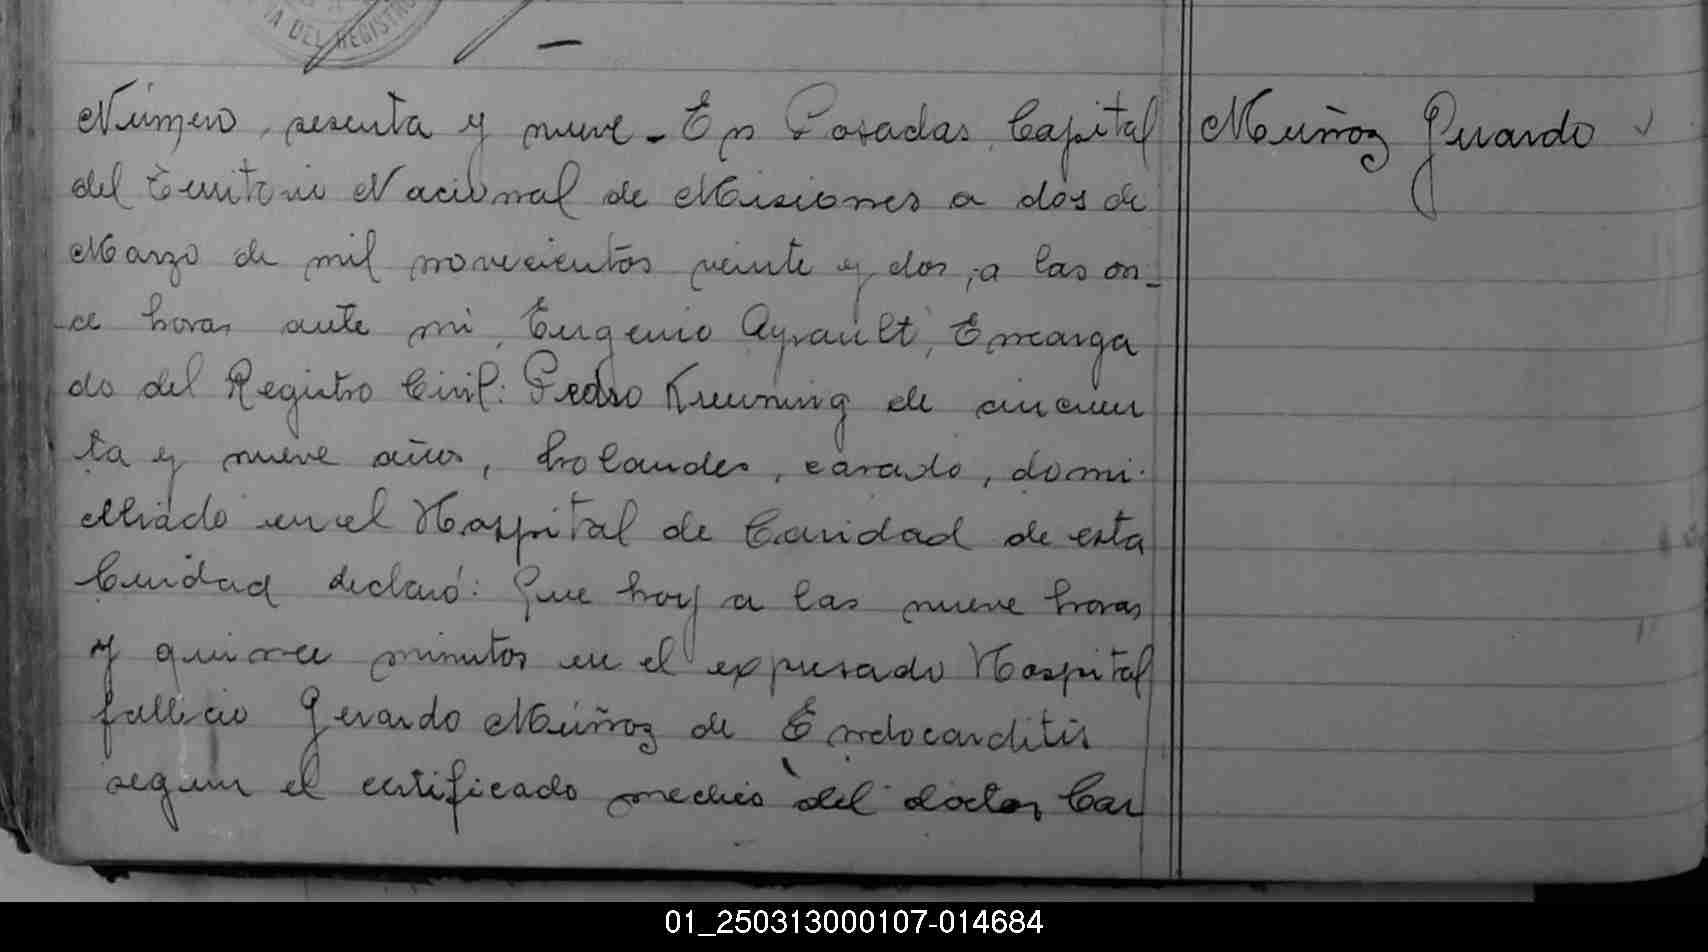 IA DEL REGISTRO
Número, sesenta y nueve - En Posadas, Capital
del Territorio Nacional de Misiones a dos de
Marzo de mil novecientos veinte y dos, a las on-
ce horas ante mi, Eugenio Ayrault, Encarga
do del Registro Civil: Pedro Kreuning de cincuen
ta y nueve años, holandes, casado, domi-
ciliado en el Hospital de Caridad de esta
Ciudad declaró: Que hoy a las nueve horas
y quince minutos en el expresado Hospital
fallecio Gerardo Muñoz de Endocarditis
segun el certificado medico del doctor Car
Muñoz Gerardo
01_250313000107-014684